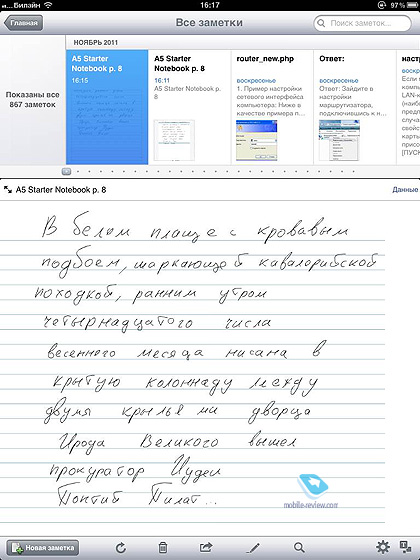 Вилайн 16:17 97 %
Главная Все заметки Поиск заметок...
НОЯБРЬ 2011
Показаны все 867 заметок
A5 Starter Notebook p. 8
16:15
A5 Starter Notebook p. 8
16:11
router_new.php
воскресенье
1. Пример настройки сетевого интерфейса компьютера: Ниже в качестве примера п...
Ответ:
воскресенье
Ответ: Зайдите в настройки маршрутизатора, подключившись к н...
A5 Starter Notebook p. 8 Данные
В белом плаще с кровавым
подбоем, шаркающей кавалерийской
походкой, ранним утром
четырнадцатого числа
весеннего месяца нисана в
крытую колоннаду между
двумя крыльями дворца
Ирода Великого вышел
прокуратор Иудеи
Понтий Пилат...
mobile-review.com
Новая заметка